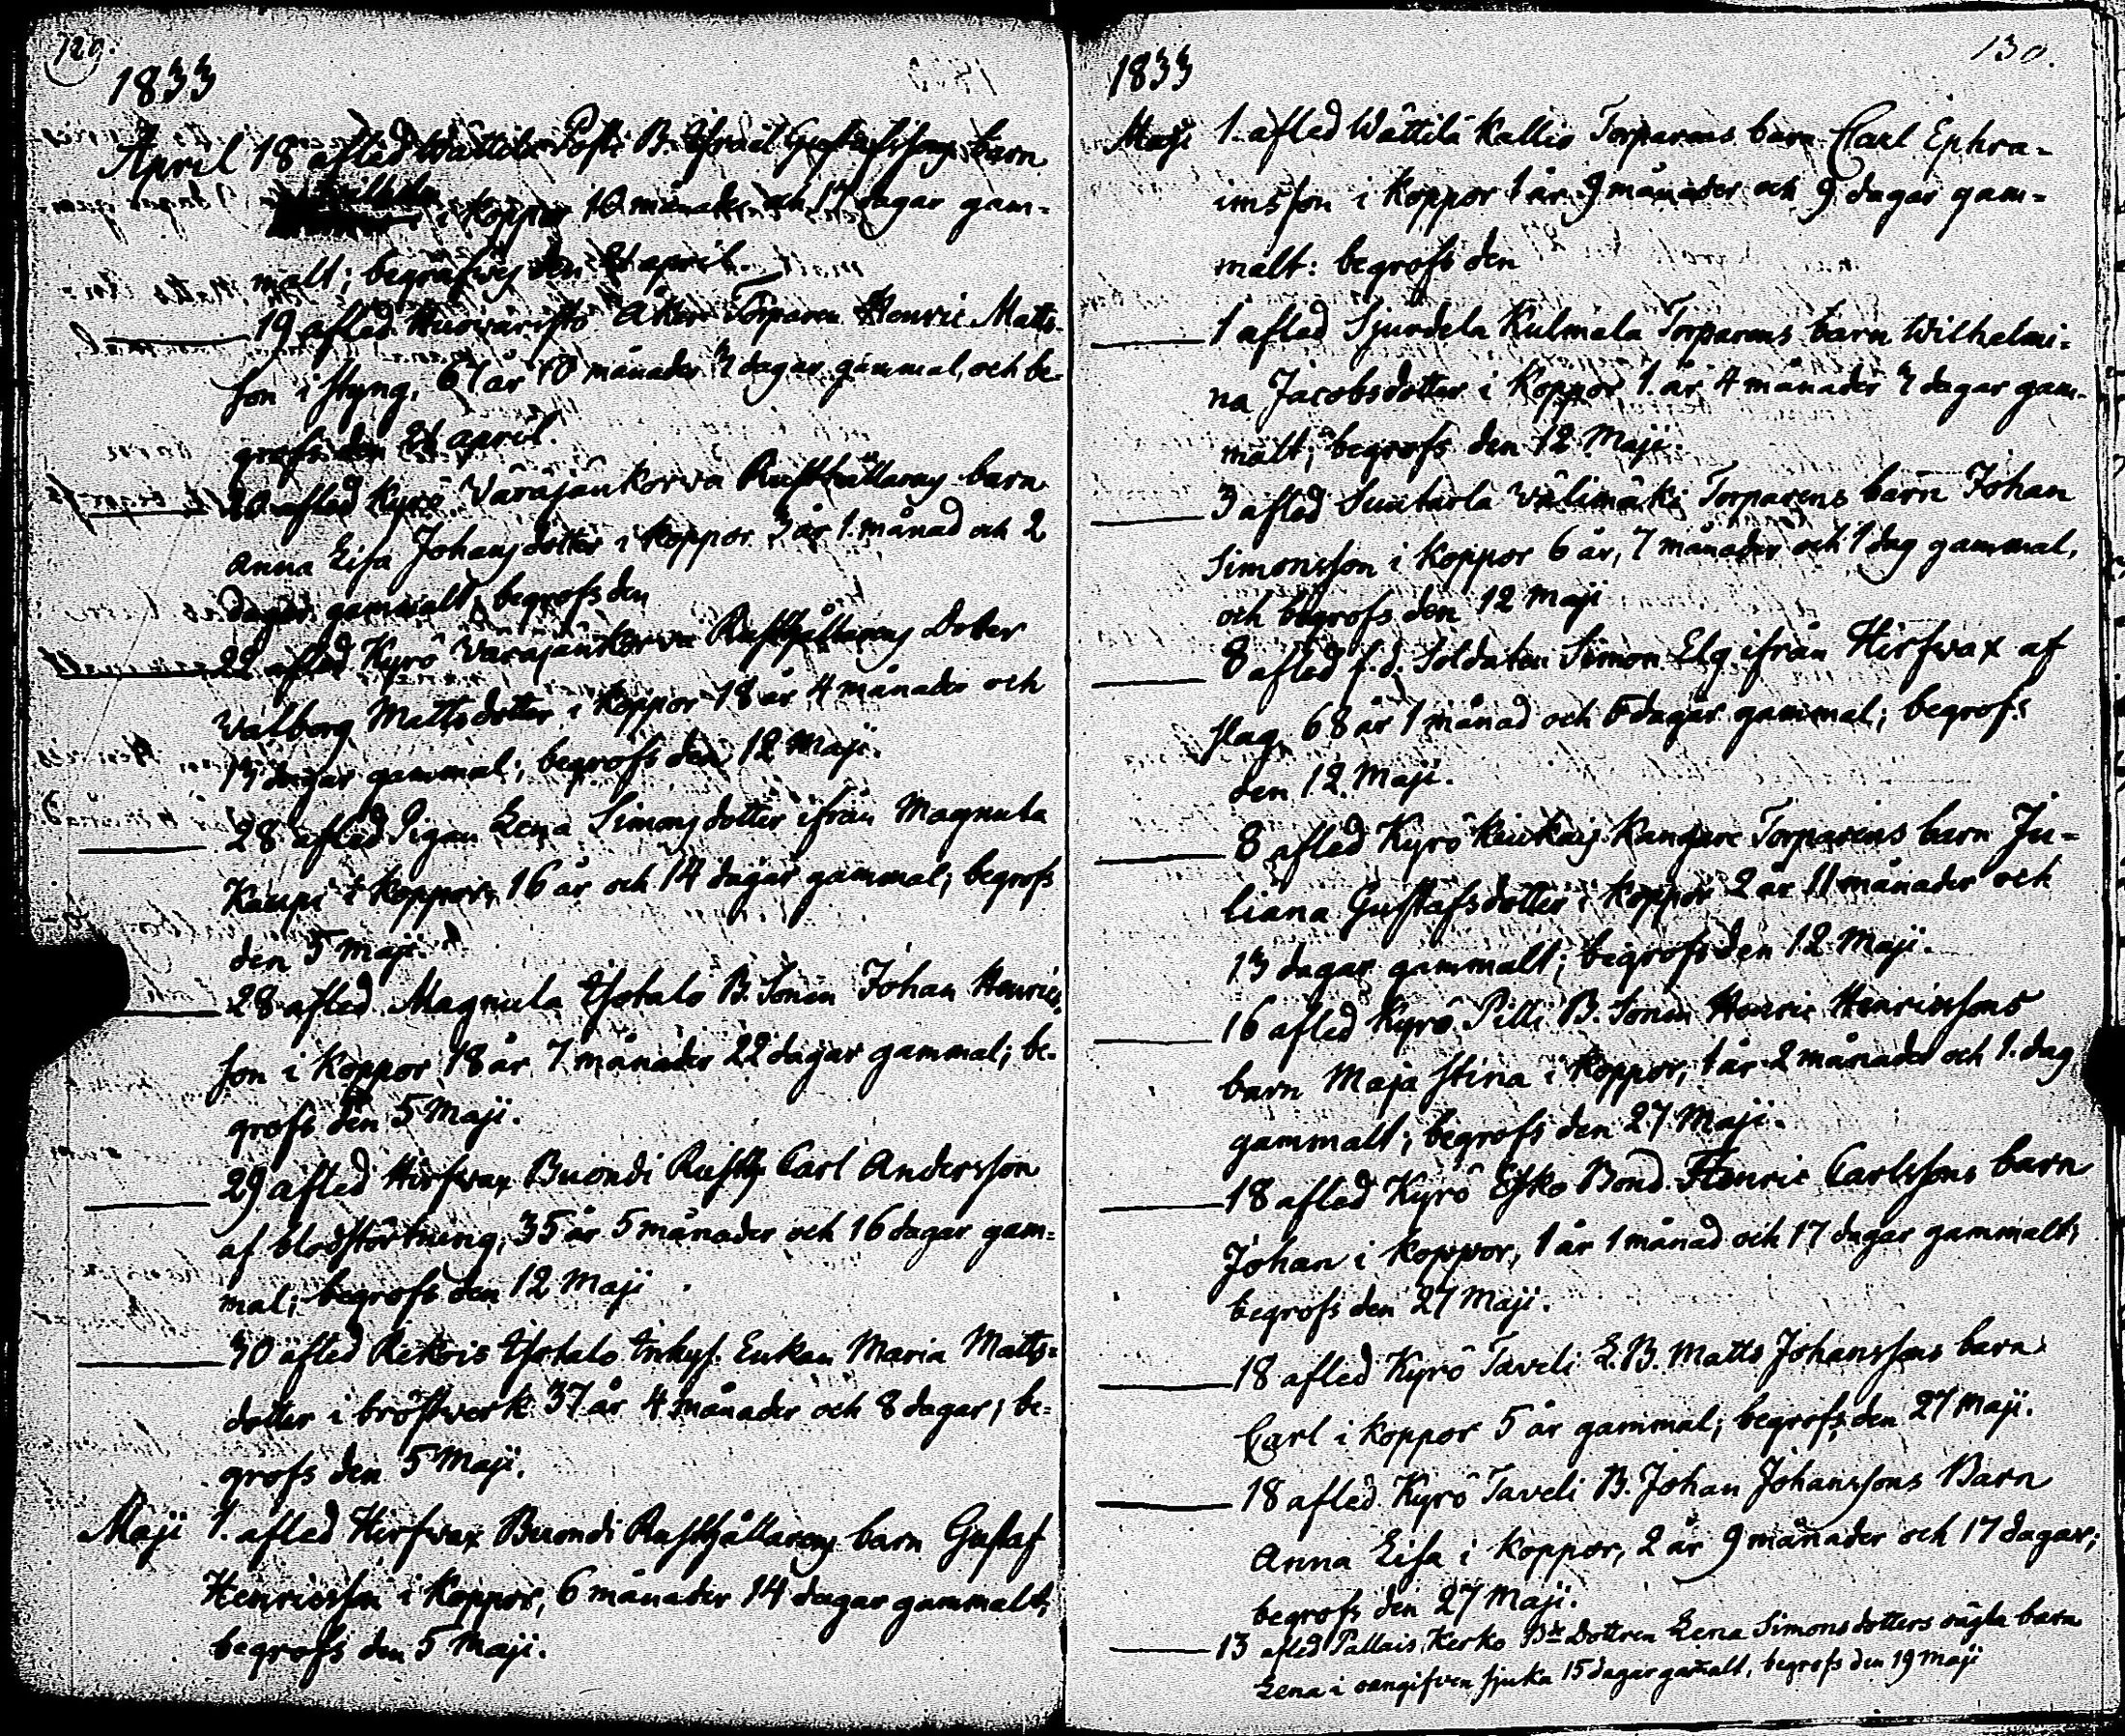 129.
1833
April 18 afled Wättilä Potti B. Israel Gustafssons barn
i Koppor 10 månader och 17 dagar gam-
malt; begrafwes den 21 april
19 afled Åker Torparen Henric Matts-
son i styng, 67 år 10 månader 3 dagar gammal, och be-
grofs den 21 april.
20 afled Kyrö Wäräjänkorva Rusthållarens barn
Anna Lisa Johansdotter i Koppor 3 år 1. månad och 2
dagar gammalt, begrofs den
22 afled Kyrö Wäräjänkorva Rusthållarens Doter
Walborg Mattsdotter i Koppor 18 år 4 månader och
13 dagar gammal; begrofs den 12 Maji.
28 afled Pigan Lena Simonsdotter ifrån Magnula
Kaupi i Koppor, 16 år och 14 dagar gammal; begrofs
den 5 Maji.
28 afled Magnula Isotalo B. Sonen Johan Henrics-
son i Koppor 18 år 7 månader 22 dagar gammal; be-
grofs den 5 Maji.
29 afled Hirfwax Buondi Rusth. Carl Andersson
af blodstörtning, 35 år 5 månader och 16 dagar gam-
mal; begrofs den 12 Maji
30 afled Rekois Isotalo Inhys. Enkan Maria Matts-
dotter i bröstwerk 37 år 4 månader och 8 dagar; be-
grofs den 5 Maji.
Maji 1. afled Hirfwax Buondi Rusthållarens barn Gustaf
Henricsson i Koppor, 6 månader 14 dagar gammalt;
begrofs den 5 Maji.
130.
1833
Maji 1. afled Wättilä Kallio Torparens barn Carl Ephra-
imsson i Koppor 1 år 9 månader och 9 dagar gam-
malt: begrofs den
1 afled Sjurdela Kulmala Torparens barn Wilhelmi-
na Jacobsdotter i Koppor 1. år 4 månader 3 dagar gam-
malt; begrofs den 12 Maji.
3 afled Suutarla Wälimäki Torparens barn Johan
Simonsson i Koppor 6 år, 7 månader och 1 dag gammal,
och begrofs den 12 Maji
8 afled f. d. Soldaten Simon Elg ifrån Hirfwax af
slag, 68 år 1 månad och 5 dagar gammal; begrofs
den 12 Maji.
8 afled Kyrö Keikais Kangare Torparens barn Ju-
liana Gustafsdotter i Koppor 2 år 11 månader och
13 dagar gammalt; begrofs den 12 Maji.
16 afled Kyrö Pilli B. Sonen Henric Henricssons
barn Maja Stina i Koppor, 1 år 2 månader och 1. dag
gammalt; begrofs den 27 Maji.
18 afled Kyrö Esko Bond. Henric Carlssons barn
Johan i Koppor, 1 år 1 månad och 17 dagar gammalt;
begrofs den 27 Maji.
18 afled Kyrö Taveli L. B. Matts Johanssons barn
Carl i Koppor 5 år gammal; begrofs den 27 Maji.
18 afled Kyrö Taveli B. Johan Johanssons Barn
Anna Lisa i Koppor, 2 år 9 månader och 17 dagar;
begrofs den 27 Maji.
13 afled Pallais Kerko Bde Dottren Lena Simonsdotters oägta barn
Lena i oangifven sjuka 15 dagar gamalt, begrofs den 19 Maji